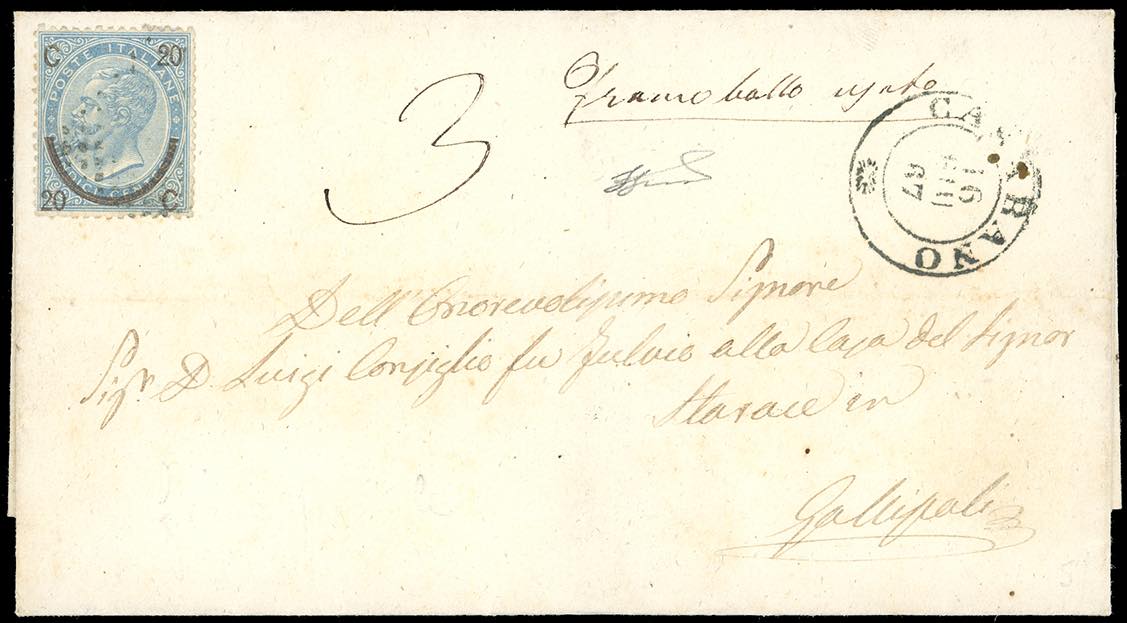 C 20
POSTE ITALIANE
QUINDICI CENTESIMI
20 C
3
Franco bollo usato
CASARANO
16
GIU
67
Dell'Onorevolissimo Signore
Sigr. D. Luigi Consiglio fu Fulvio alla Casa del Signor
Starace in
Gallipoli